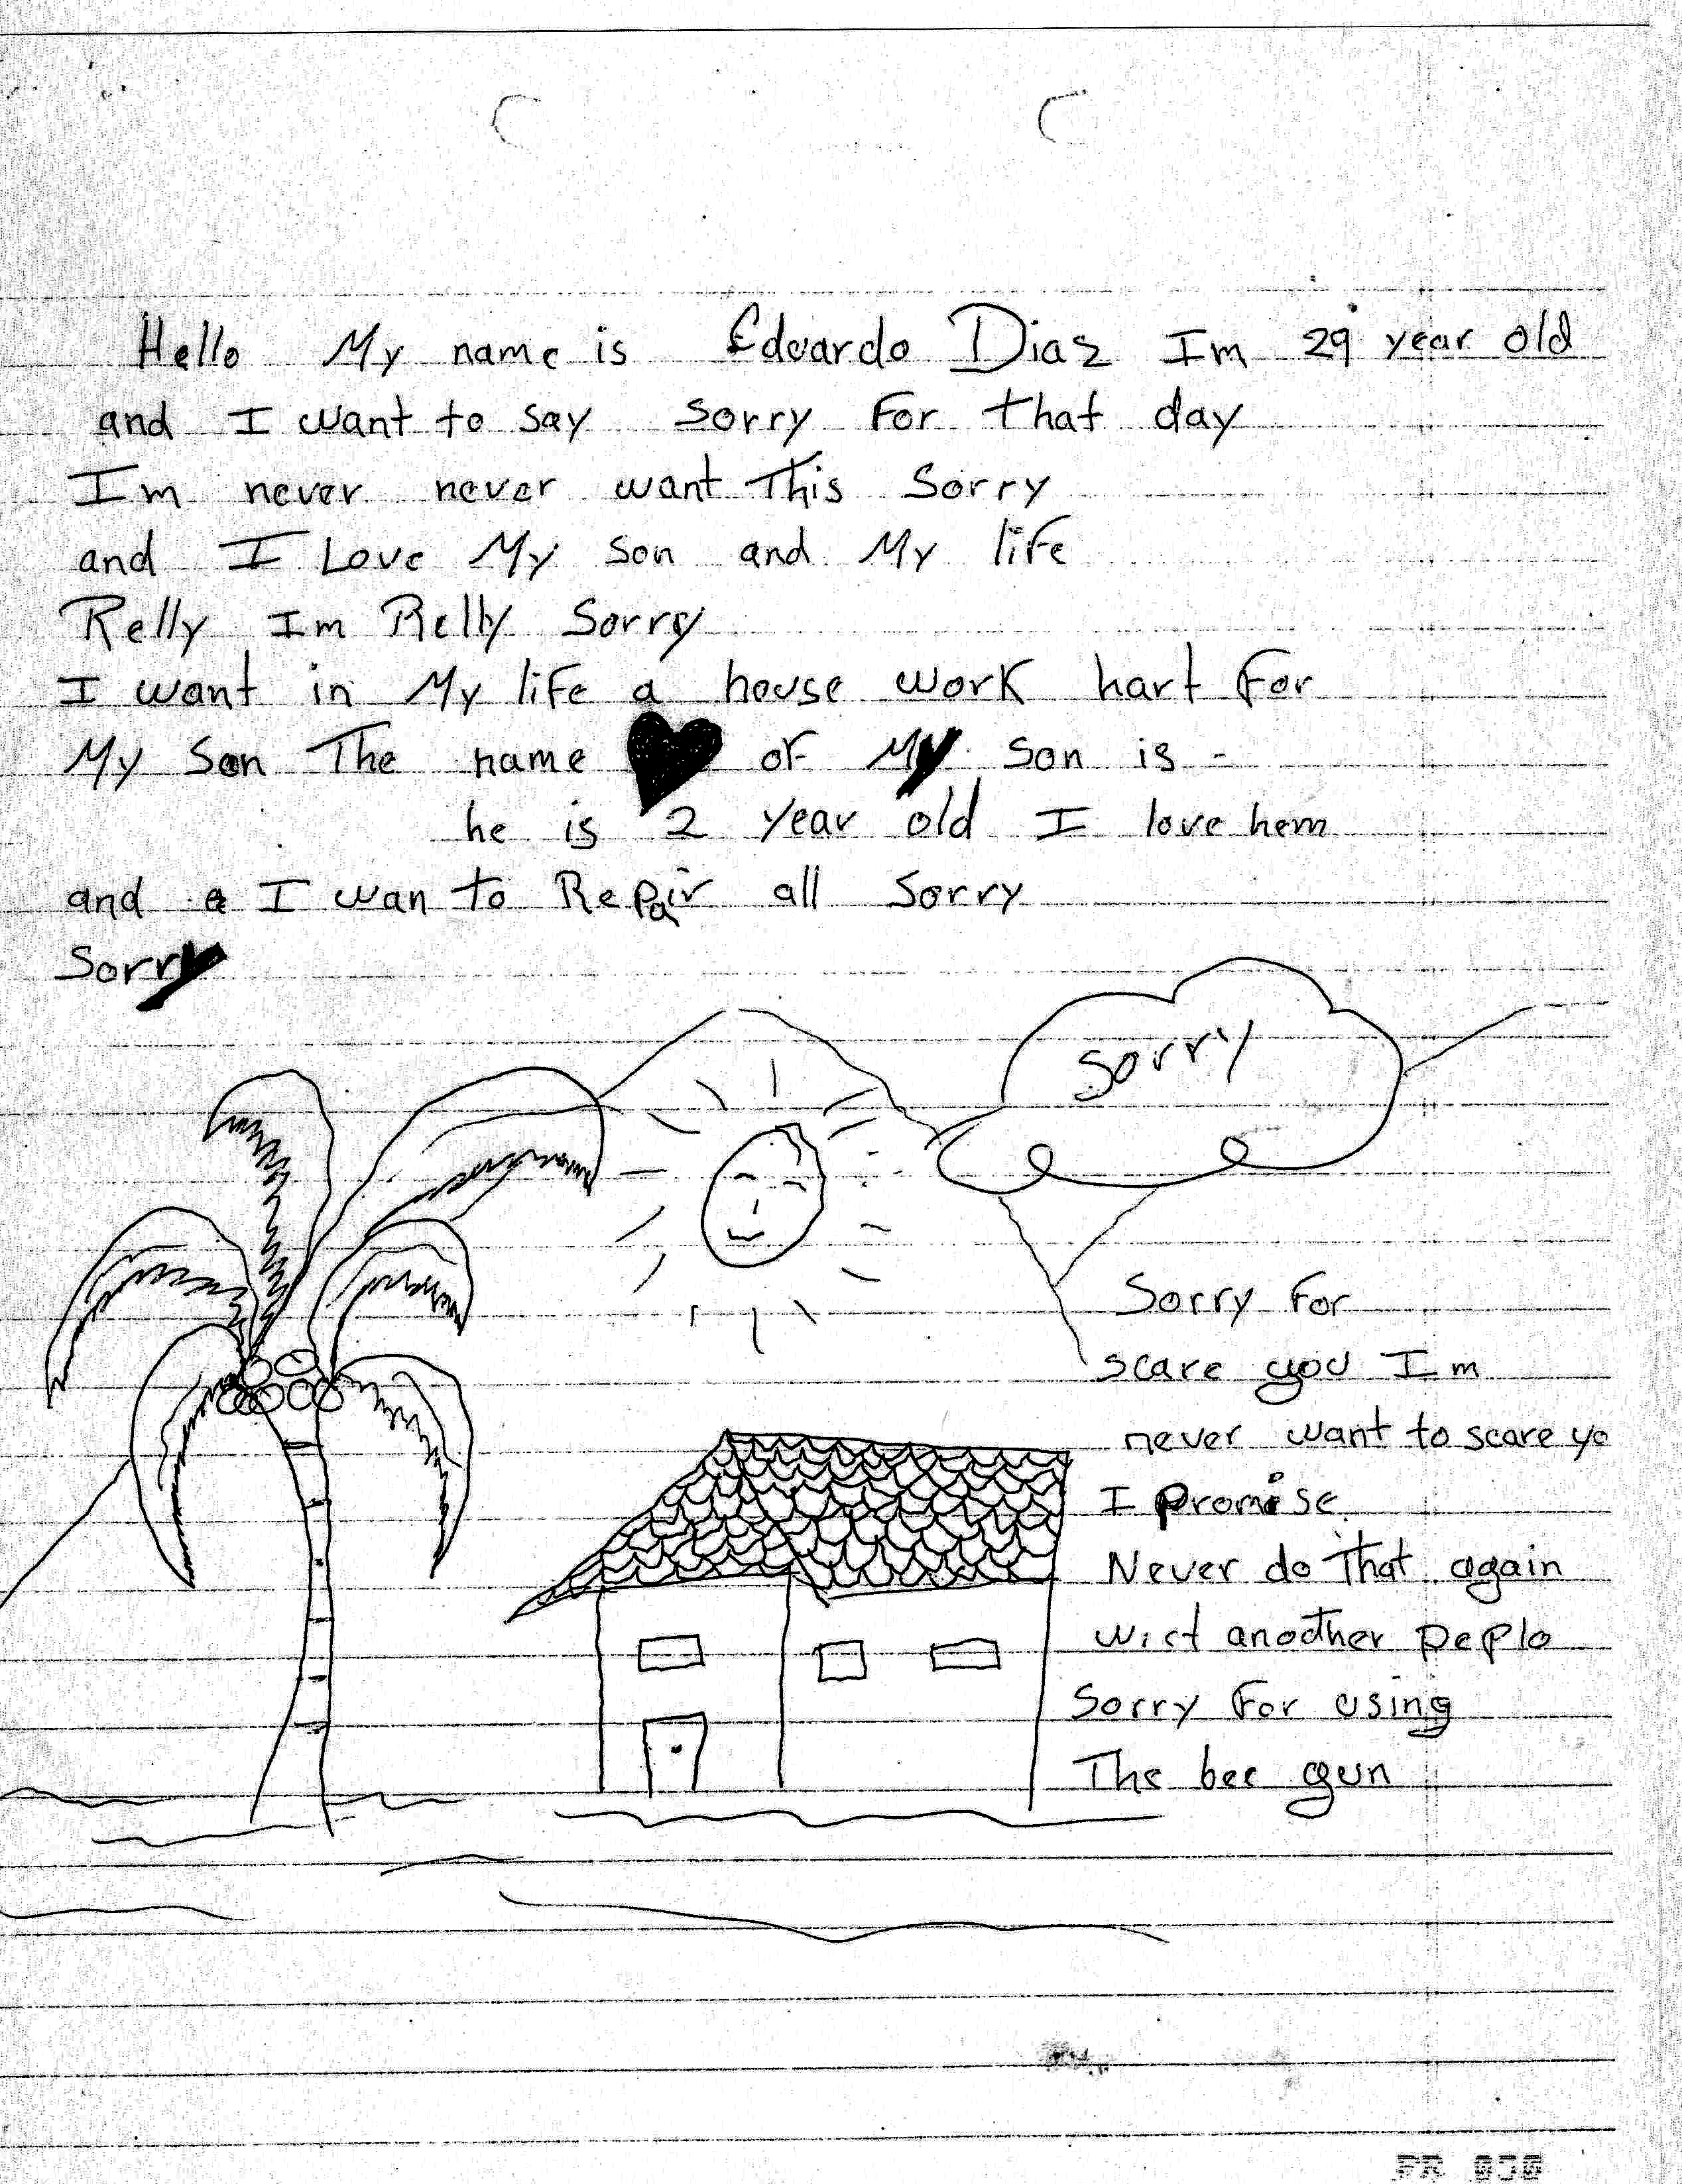 Hello My name is Eduardo Diaz Im 29 year old
and I want to say sorry For that day
Im never never want This Sorry
and I Love My son and My life
Relly Im Relly Sorry
I want in My life a house work hart For
My Son The name of My son is -
he is 2 year old I love hem
and a I wan to Repair all Sorry
Sorry
sorry
Sorry For
scare you Im
never want to scare yo
I promise
Never do That again
wict another peplo
Sorry For using
The bee gun
PR 030